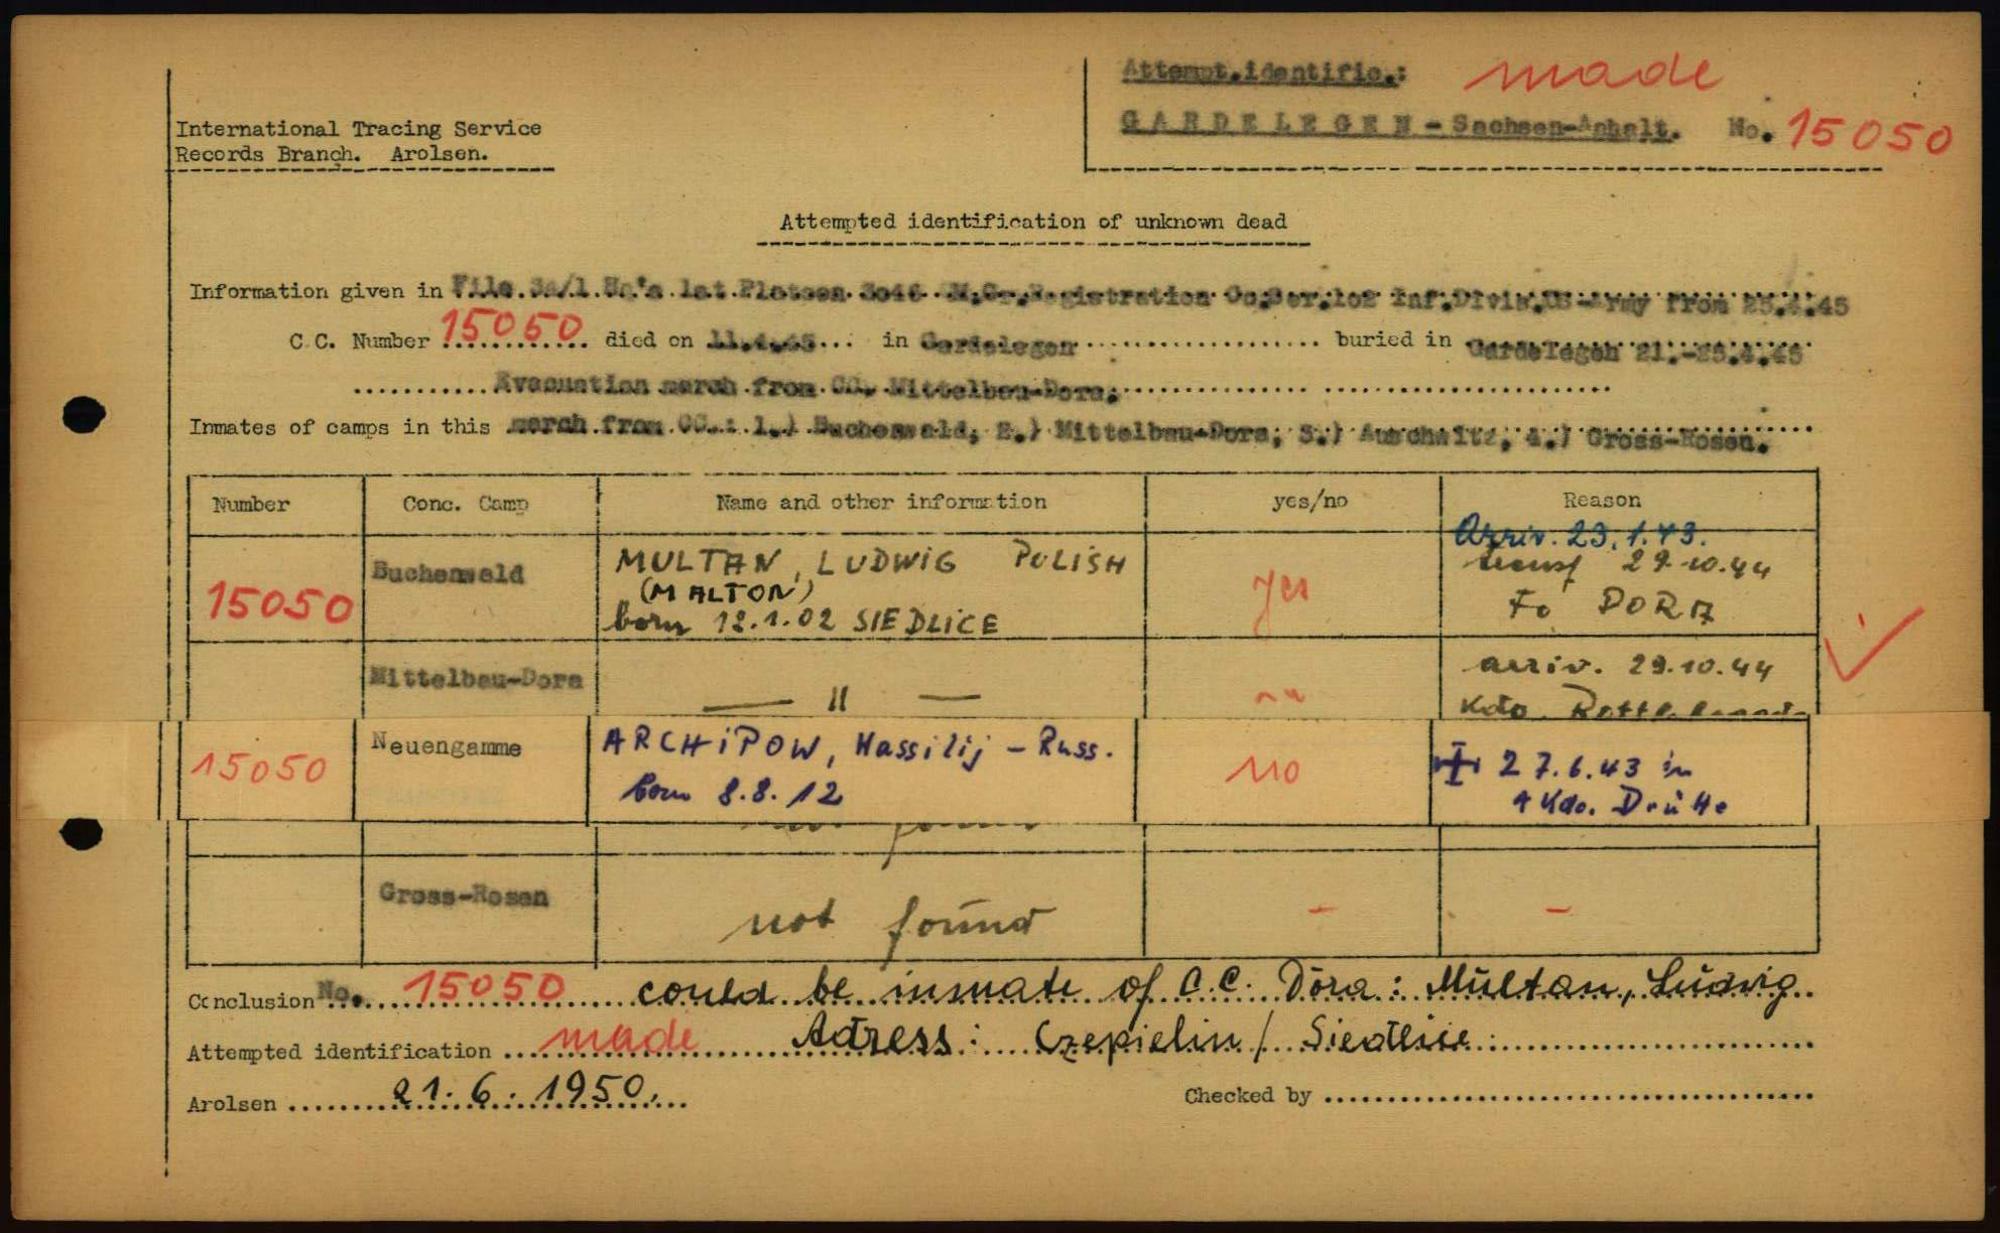 Attempt.identific.: made
GARDELEGEN - Sachsen-Anhalt. No. 15050
International Tracing Service
Records Branch. Arolsen.
Attempted identification of unknown dead
Information given in File 3a/1 1st Platoon 3046 Registration Co. Ser. 102 Inf. Divis. US-Army from 25.4.45
C.C. Number 15050 died on 11.4.45 in Gardelegen buried in Gardelegen 21.-25.4.45
Evacuation march from CC. Mittelbau-Dora.
Inmates of camps in this march from CC.: 1.) Buchenwald, 2.) Mittelbau-Dora, 3.) Auschwitz, 4.) Gross-Rosen.
Number Conc. Camp Name and other information yes/no Reason
Arriv. 23.1.43.
15050 Buchenwald MULTAN, LUDWIG POLISH yes transf 29.10.44
(MALTON) To DORA
born 12.1.02 SIEDLICE
Mittelbau-Dora — " — arriv. 29.10.44
Kdo.
15050 Neuengamme ARCHiPOW, Wassilij - Russ. no 27.6.43 in
born 8.8.12 Kdo. Drütte
Gross-Rosen not found - -
Conclusion No. 15050 could be inmate of C.C. Dora: Multan, Ludwig
Attempted identification made Adress: Czepielin / Siedlice
Arolsen 21.6.1950. Checked by